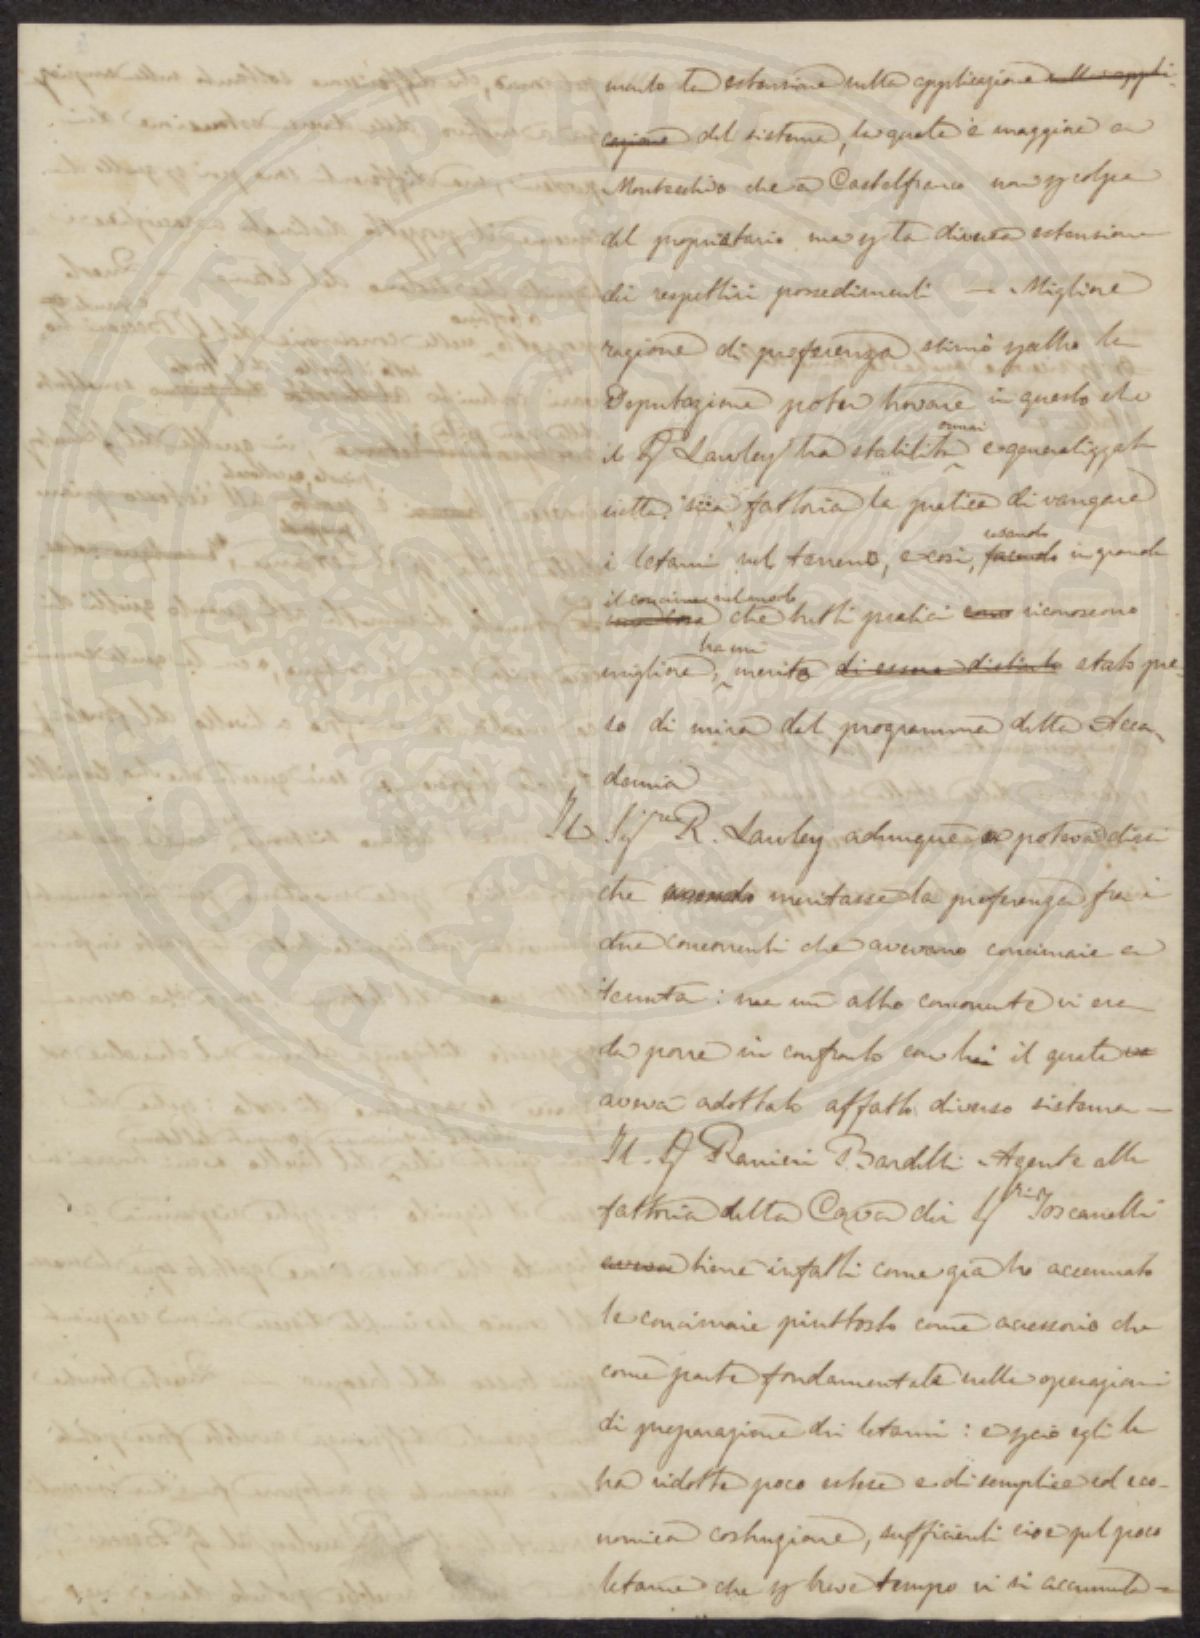 mento la estensione nella applicazione nella appli-
cazione del sistema, la quale è maggiore a
Montecchio che a Castelfranco non p colpa
del proprietario ma p la diversa estensione
dei respettivi possedimenti — Migliore
ragione di preferenza stimò p altro la
Deputazione poter trovare in questo che
ormai
il Sig Lawley ha stabilita e generalizzat
nella sua fattoria la pratica di vangare
usando
i letami nel terreno, e così, facendo in grande
il concime nel modo
che tutti i pratici riconoscono
migliore, merita di essere distinto stato pre-
so di mira dal programma della Acca-
demia
Il Sigre R. Lawley adunque poteva dirsi
che meritasse la preferenza fra i
due concorrenti che avevano concimaie a
tenuta: ma un altro concorrente vi era
da porre in confronto con lui il quale
aveva adottato affatto diverso sistema —
Il Sig Ranieri Bardelli Agente alla
fattoria della Cava dei Sigri Toscanelli
aveva tiene infatti come già ho accennato
le concimaie piuttosto come accessorio che
come parte fondamentale nelle operazioni
di preparazione dei letami: e p ciò egli le
ha ridotte poco estese e di semplice ed eco-
nomica costruzione, sufficienti cioè pel poco
letame che p breve tempo vi si accumula —